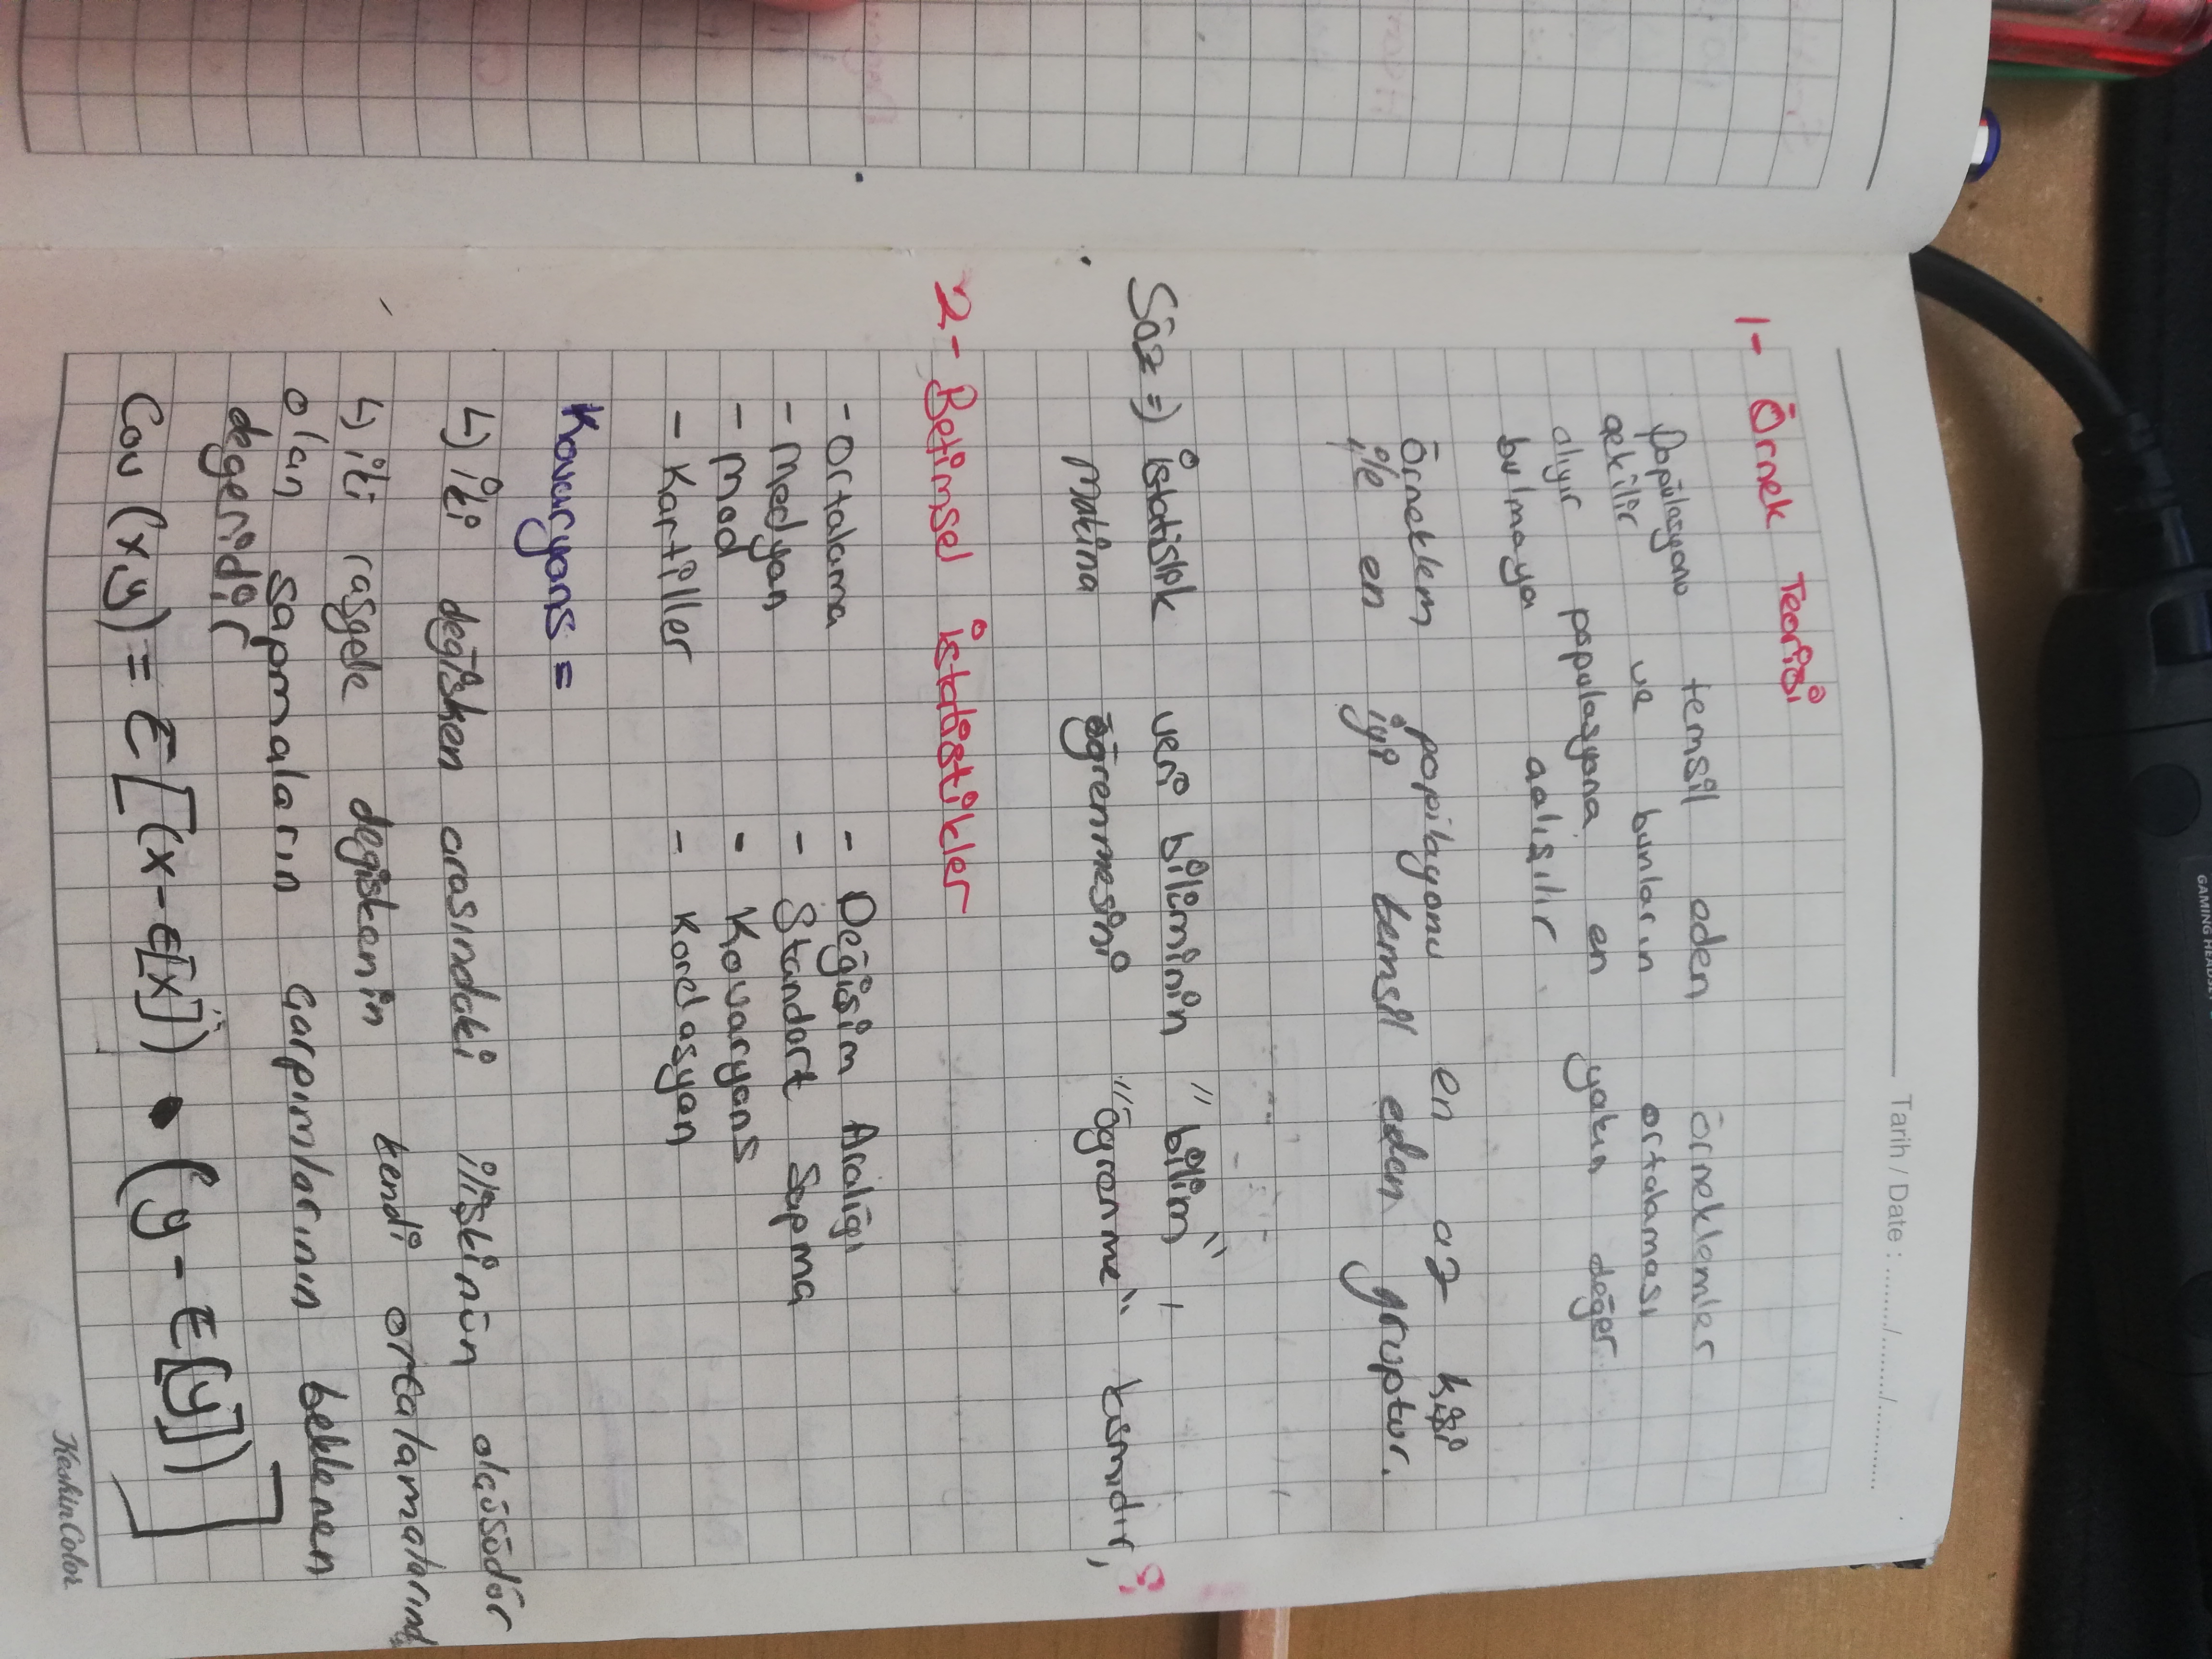 GAMING HEADSET
Tarih / Date : ......../......../............
1- Örnek Teorisi
Popülasyonu temsil eden örneklemler
çekilir ve bunların ortalaması
alıyır populasyona en yakın değer
bulmaya çalışılır
Örneklem popilayonu en az kişi
ile en iyi temsil eden gruptur.
Söz => İstatislik veri biliminin "bilim",
Makina öğrenmesini "ögrenme" kısmıdır,
2- Betimsel İstatistikler
- Ortalama - Değişim Aralığı
- Medyan - Standart Sapma
- Mod - Kovaryans
- Kartiller - Korelasyon
Kovaryans =
↳ İki değişken arasındaki ilişkinün ölçüsüdür
↳ iki raşgele degiskenin kendi ortalamalarınd
olan sapmaların çarpımlarının beklenen
degeridir
Cov (x,y) = E[(x-E[x]) • (y-E[y])]
KeskinColor